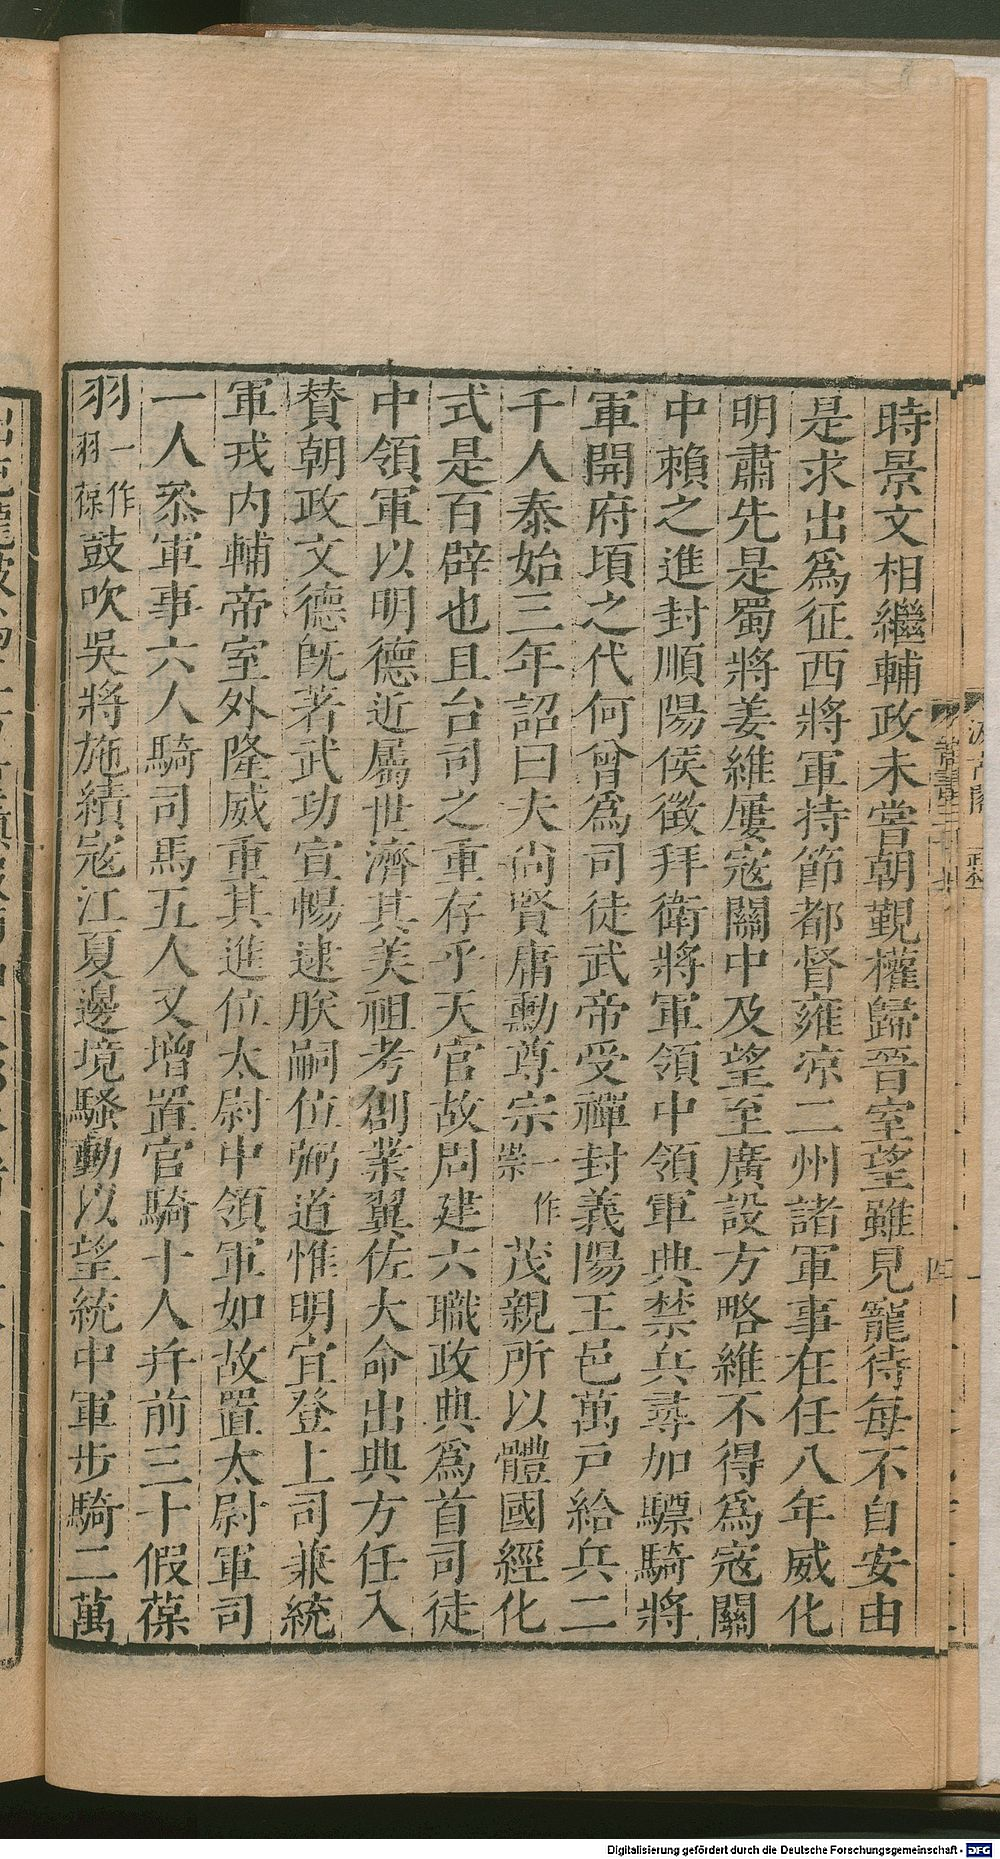 時景文相繼輔政未嘗朝覲權歸晉室望雖見寵待每不自安由
是求出爲征西將軍持節都督雍涼二州諸軍事在任八年威化
明肅先是蜀將姜維屢寇關中及望至廣設方略維不得爲寇關
中賴之進封順陽侯徵拜衛將軍領中領軍典禁兵尋加驃騎將
軍開府頃之代何曾爲司徒武帝受禪封義陽王邑萬戸給兵二
千人泰始三年詔曰夫尚賢庸勳尊宗一作崇茂親所以體國經化
式是百辟也且台司之重存乎天官故周建六職政典爲首司徒
中領軍以明德近屬世濟其美祖考創業翼佐大命出典方任入
贊朝政文德旣著武功宣暢逮朕嗣位弼道惟明宜登上司兼統
軍戎内輔帝室外隆威重其進位太尉中領軍如故置太尉軍司
一人叅軍事六人騎司馬五人又增置官騎十人并前三十假葆
羽一作羽葆鼓吹吳將施績寇江夏邊境騷動以望統中軍步騎二萬
Digitalisierung gefördert durch die Deutsche Forschungsgemeinschaft - DFG